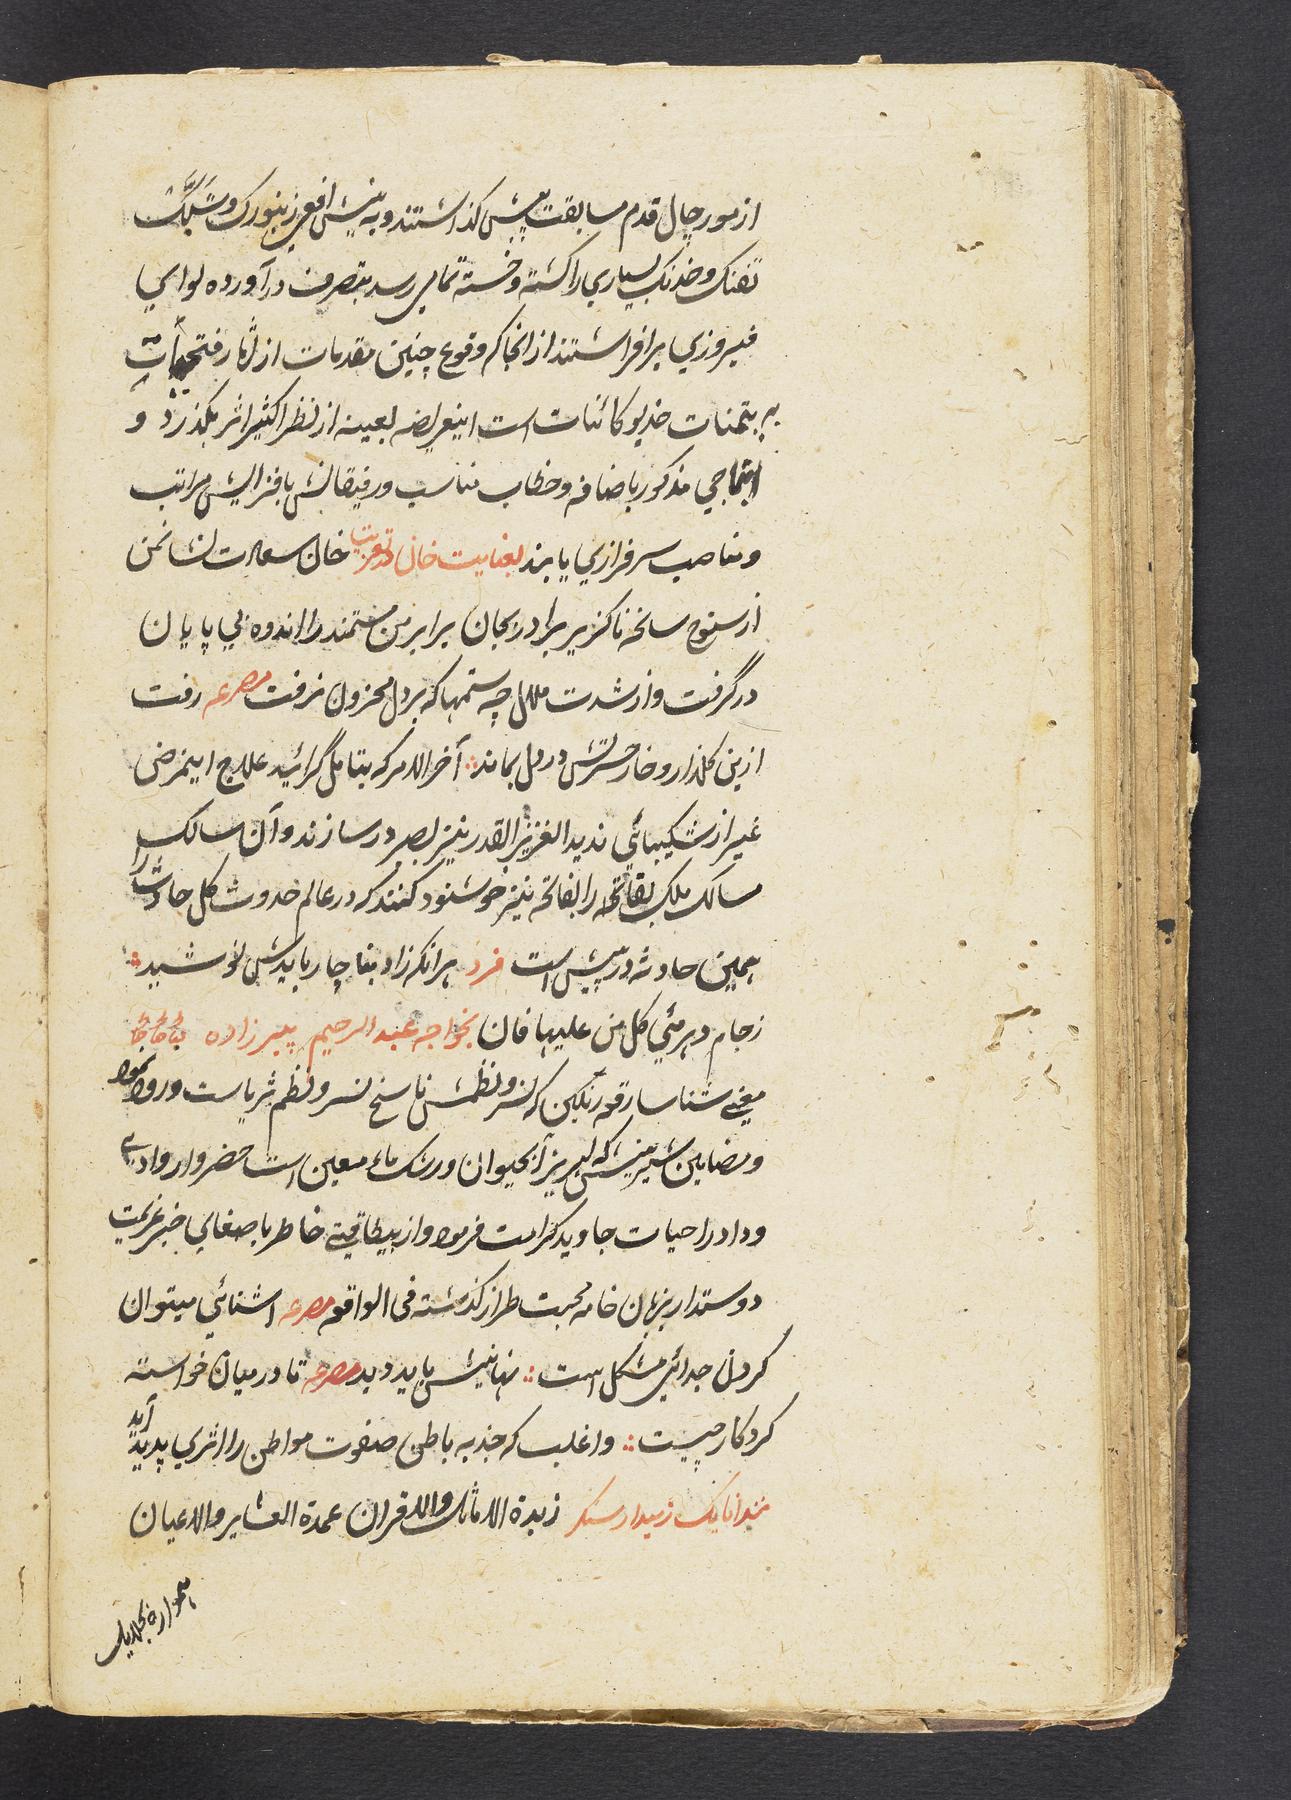 از مورچال قدم مسابقت پیش گذاشتند و به نیش افعی زنبورک و شبلک
تفنک و خدنک بسیاری را کشته و خسته تمامی رسد بتصرف درآورده لوای
فیروزی برافراشتند ازانجا که وقوع چنین مقدمات از آثار فتحیات
به یتمنات خدیو کائنات است اینعریضه بعینه از نظر اکثیر اثر بگذرد و
مذکور باضافه و خطاب مناسب و رفیقانش بافزایش مراتب
و مناصب سرفرازی یابند بعنایت خان در تعزیت خان سعادت نشانمن
از سنوح سانحه ناگزیر برادر بجان برابر من مستمند را اندوه بی پایان
درگرفت و از شدت ملال چه ستمها که بر دل محزون نرفت مصرعه رفت
ازین گلذار و خار حسرتش در دل بماند آخرالامر که بتامل گرائید علاج اینمرض
غیر از شکیبائی ندید العزیز القدر نیز بصبر درسازند و آن سالک
مسالک ملک بقا را بفاتحه نیز خوشنود کنند که در عالم حدوث کل حادث را
همین حادثه در پیش است فرد هرانکه زاد بناچار بایدش نوشید
ز جام دهر مئی کل من علیها فان بخواجه عبدالرحیم پیرزاده
معنی شناسا رقعه رنگین که نثر و نظمش ناسخ نسر و نظم ثریاست ورود نمود
و مضامین شیرینش که لبریز آبحیوان و رشک ماء معین است خضروار وادی
وداد را حیات جاوید کرامت فرمود و از بیطاقتی خاطر باصغای خبر عزیمت
دوستدار بزبان خامه محبت طراز گذشته فی الواقعه مصرعه اشنائی میتوان
کردن جدائی مشکل است نهانیش باید دید مصرعه تا در میان خواسته
کردکار چیست و اغلب که جذبه باطن صفوت مواطن را اثری پدید آید
زمیدار زبدة الاماثل والاقران عمدة العشایر والاعیان
همواره